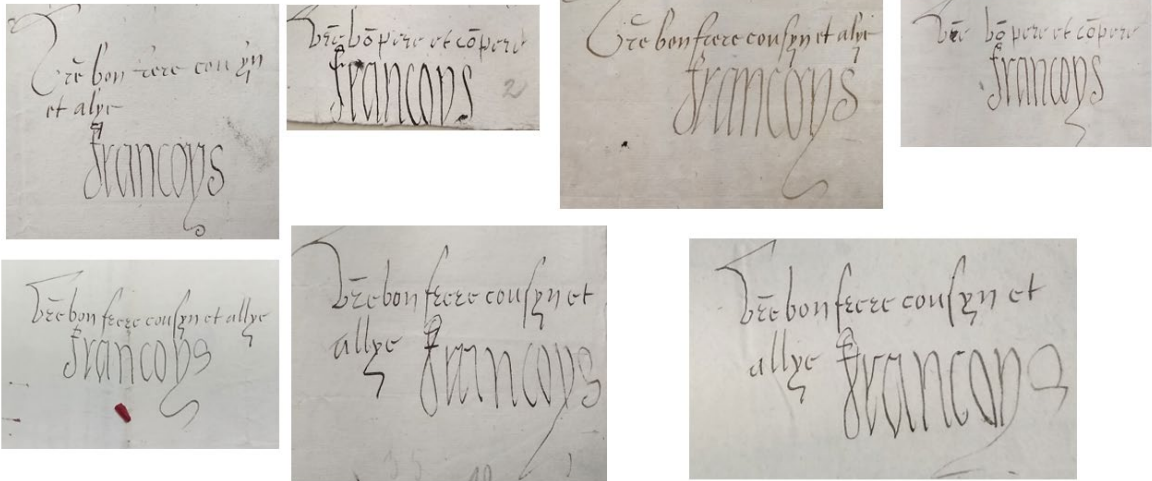 Vr̃e bon frere cousyn
et alye
francoys
Vr̃e bõ pere et cõpere
francoys
2
Vr̃e bon frere cousyn et alye
francoys
Vr̃e bõ pere et cõpere
francoys
Vr̃e bon frere cousyn et allye
francoys
Vr̃e bon frere cousyn et
allye francoys
Vr̃e bon frere cousyn et
allye francoys